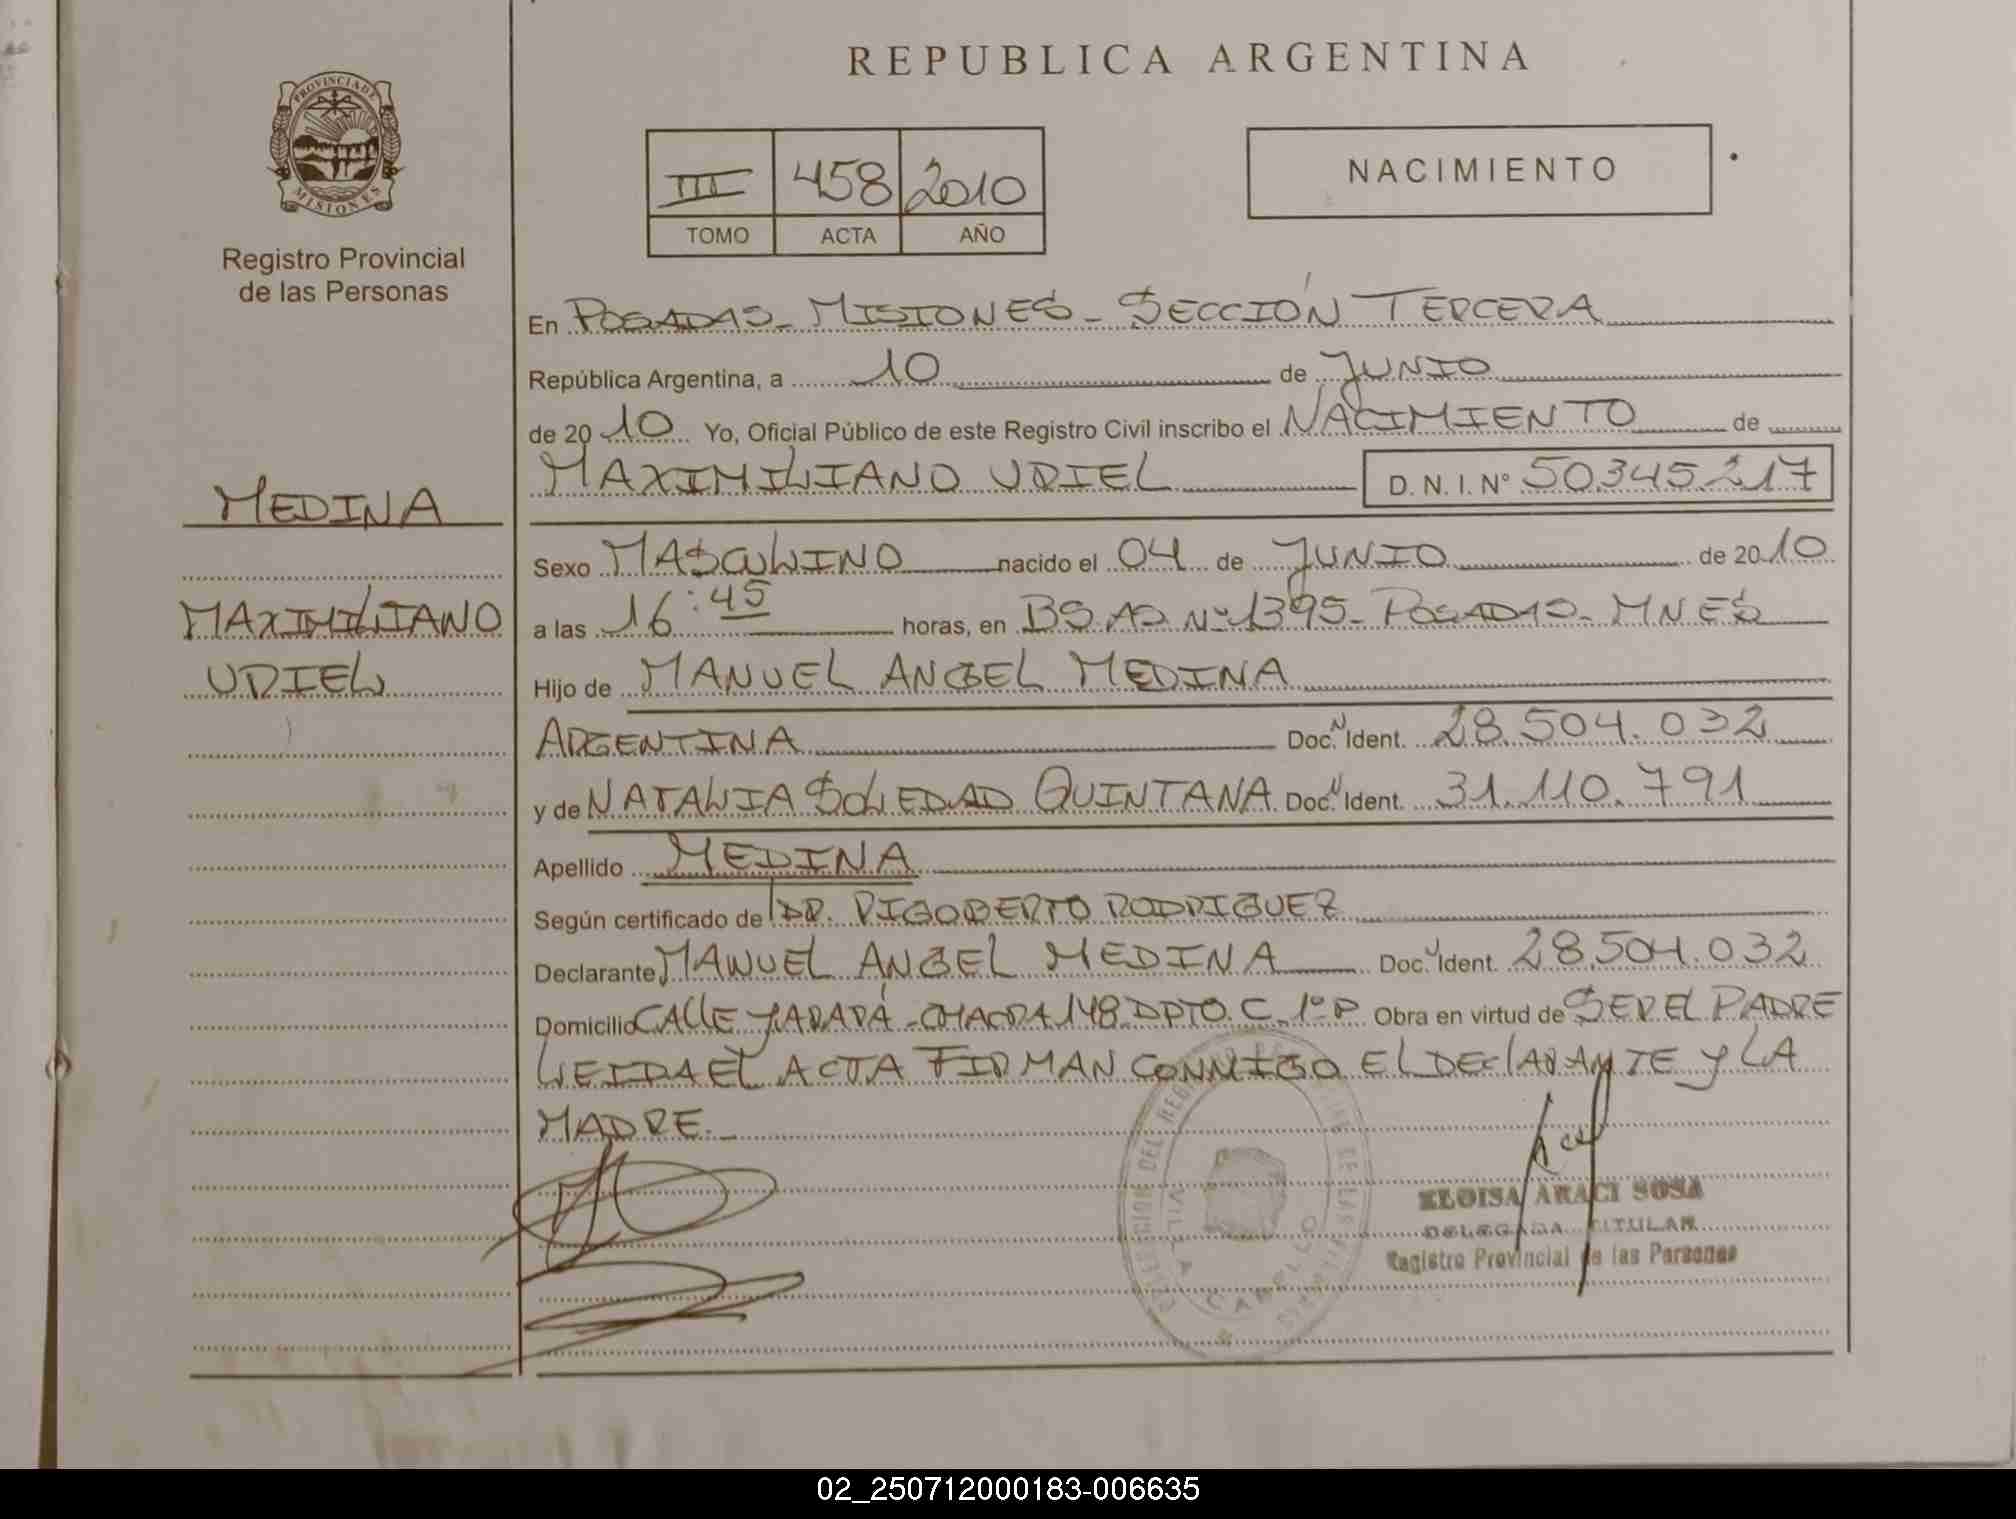 REPUBLICA ARGENTINA
PROVINCIA DE
MISIONES
Registro Provincial
de las Personas
III 458 2010
TOMO ACTA AÑO
NACIMIENTO
En POSADAS - MISIONES - SECCIÓN TERCERA
República Argentina, a 10 de JUNIO
de 2010 Yo, Oficial Público de este Registro Civil inscribo el NACIMIENTO de
MAXIMILIANO URIEL D. N. I. N° 50.345.217
MEDINA
Sexo MASCULINO nacido el 04 de JUNIO de 2010
MAXIMILIANO
a las 16:45 horas, en BS. AS. N° 1395 - POSADAS - MNES
URIEL
Hijo de MANUEL ANGEL MEDINA
ARGENTINA Doc. N Ident. 28.504.032
y de NATALIA SOLEDAD QUINTANA Doc. N Ident. 31.110.791
Apellido MEDINA
Según certificado de DR. RIGOBERTO RODRIGUEZ
Declarante MANUEL ANGEL MEDINA Doc. N Ident. 28.504.032
Domicilio CALLE YARARÁ - CHACRA 148 DPTO. C 1° P Obra en virtud de SER EL PADRE
LEIDA EL ACTA FIRMAN CONMIGO EL DECLARANTE Y LA
MADRE.
ELOISA ARACI SOSA
DELEGADA TITULAR
Registro Provincial de las Personas
VILLA CABELLO
02_250712000183-006635